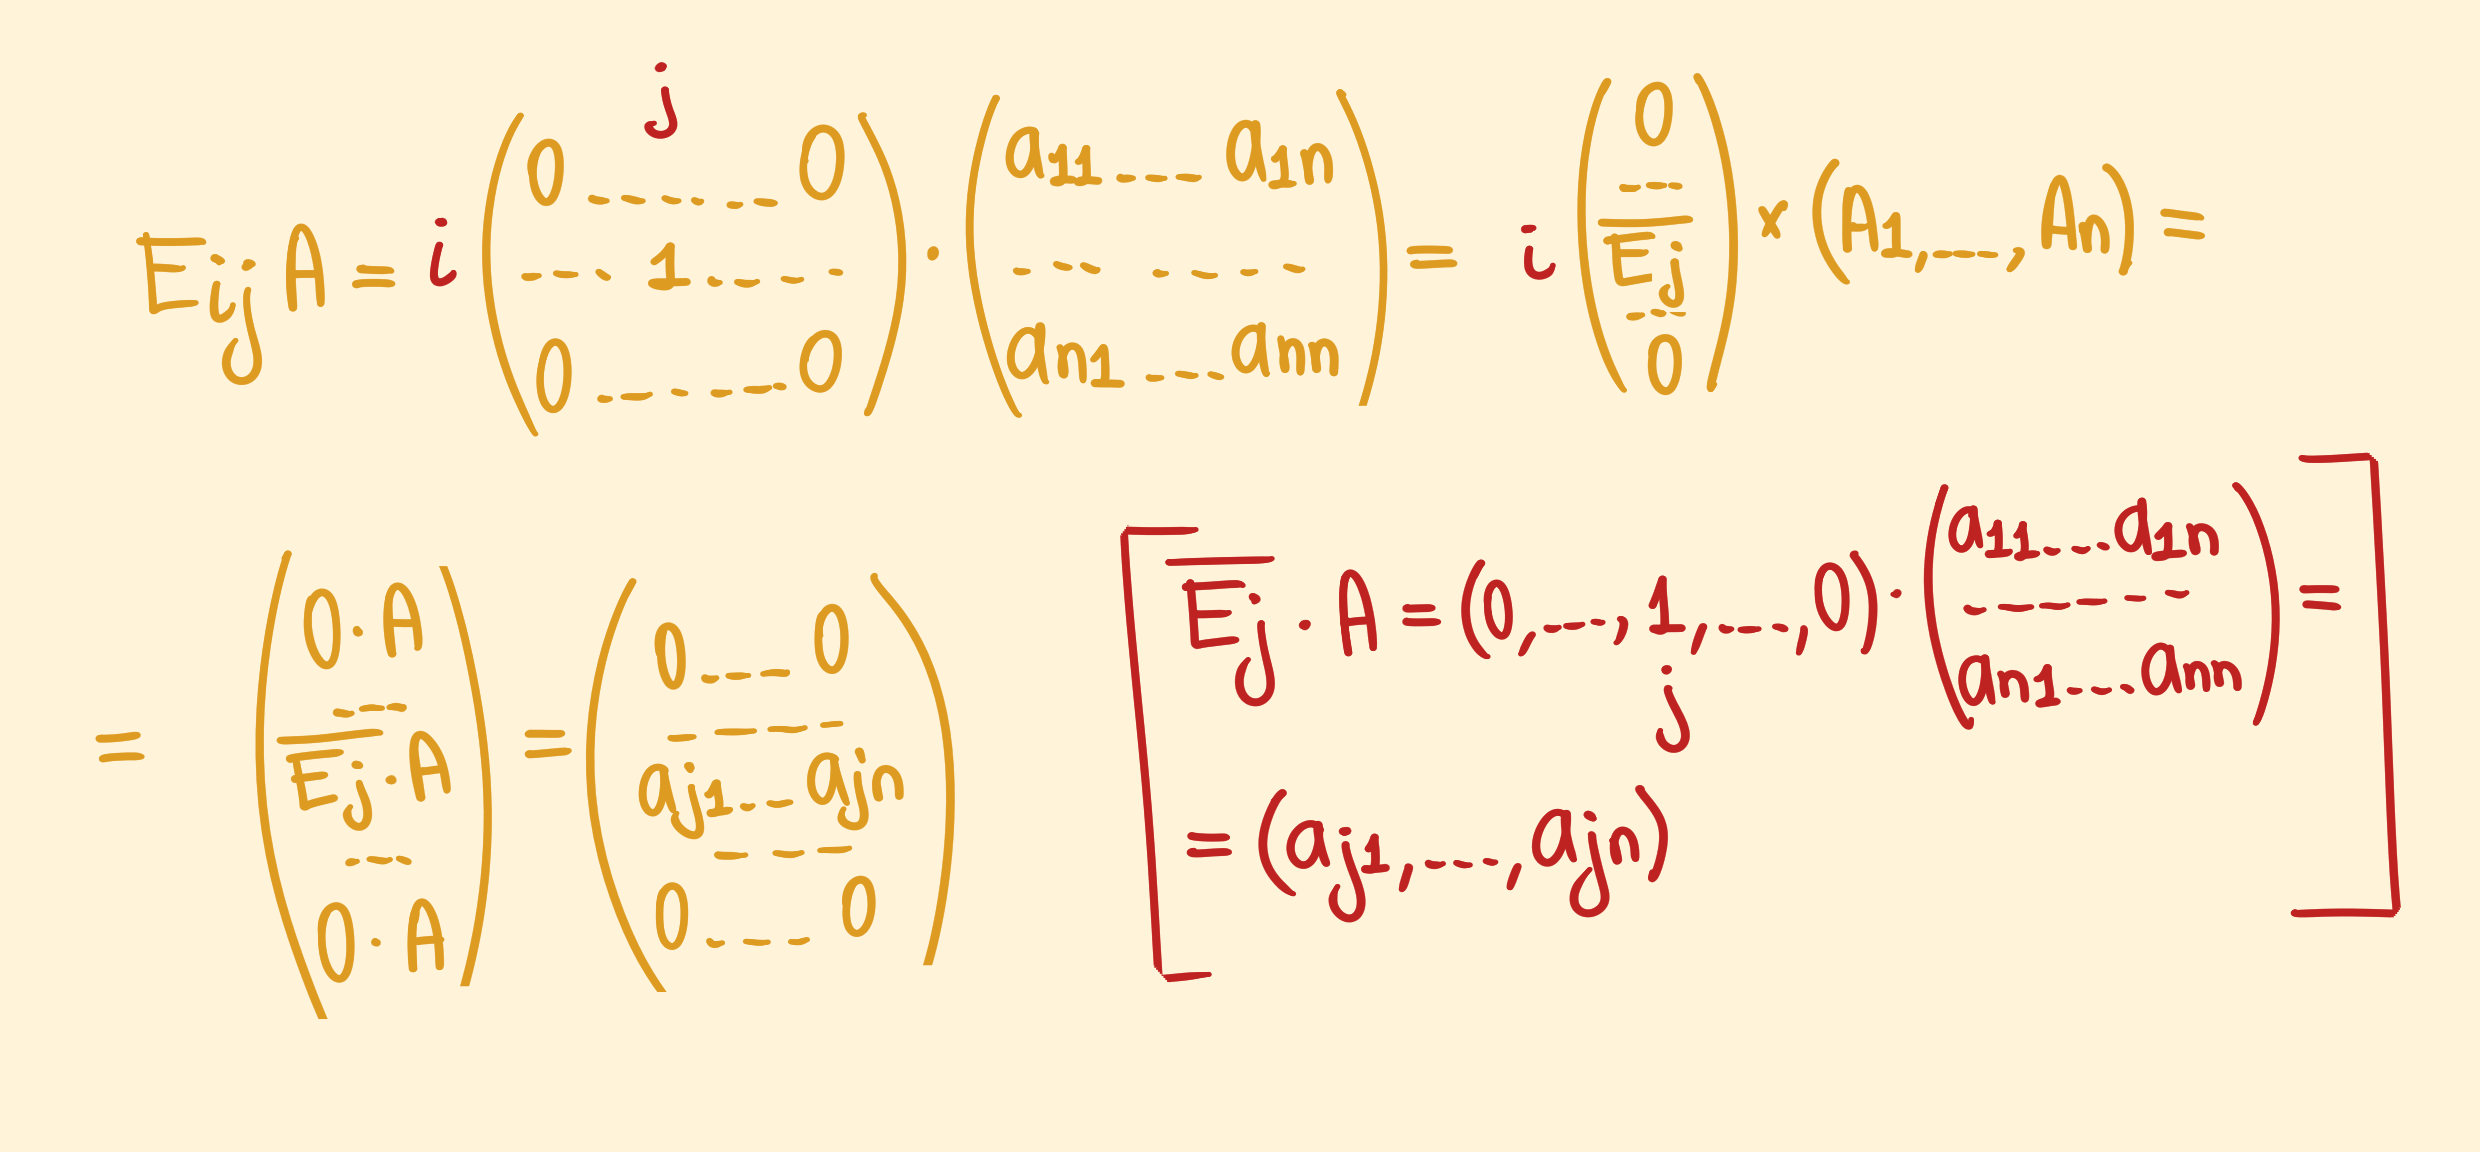 j
E_{ij} A = i \begin{pmatrix} 0 & ---- & 0 \\ --- & 1 & ---- \\ 0 & ---- & 0 \end{pmatrix} \cdot \begin{pmatrix} a_{11} & --- & a_{1n} \\ --- & --- & --- \\ a_{n1} & --- & a_{nn} \end{pmatrix} = i \begin{pmatrix} 0 \\ --- \\ \overline{E_j} \\ --- \\ 0 \end{pmatrix} × (A_1, ---, A_n) =
= \begin{pmatrix} 0 \cdot A \\ --- \\ \overline{E_j} \cdot A \\ --- \\ 0 \cdot A \end{pmatrix} = \begin{pmatrix} 0 & --- & 0 \\ --- & --- & --- \\ a_{j1} & --- & a_{jn} \\ --- & --- & --- \\ 0 & --- & 0 \end{pmatrix}
[ \overline{E_j} \cdot A = (0, ---, 1, ---, 0) \cdot \begin{pmatrix} a_{11} & --- & a_{1n} \\ --- & --- & --- \\ a_{n1} & --- & a_{nn} \end{pmatrix} =
j
= (a_{j1}, ---, a_{jn}) ]